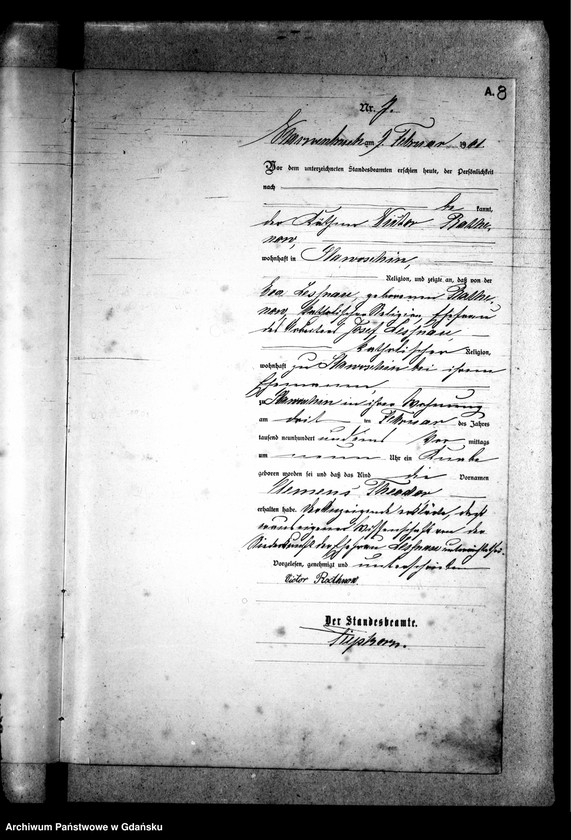 A. 8
Nr. 7.
am 9. Februar 1901.
Vor dem unterzeichneten Standesbeamten erschien heute, der Persönlichkeit
nach
be kannt,
der Käthner Victor
now,
wohnhaft in Slawoschin,
Religion, und zeigte an, daß von der
Eva Lessnau, geborenen
now, katholischer Religion, Ehefrau
des Arbeiters Josef Lessnau
katholischer Religion,
wohnhaft zu Slawoschin bei ihrem
Ehemanne,
zu Slawoschin in ihrer Wohnung
am drei ten Februar des Jahres
tausend neunhundert und eins Vor mittags
um neun Uhr ein Knabe
geboren worden sei und daß das Kind die Vornamen
Clemens Theodor
erhalten habe. Der Anzeigende erklärte, daß
er aus eigener Wissenschaft von der
Niederkunft der Ehefrau Lessnau unterrichtet sei.
Vorgelesen, genehmigt und unterschrieben
Victor
Der Standesbeamte.
Archiwum Państwowe w Gdańsku